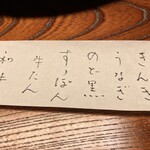 きんき
うなぎ
のど黒
すっぽん
牛たん
和牛